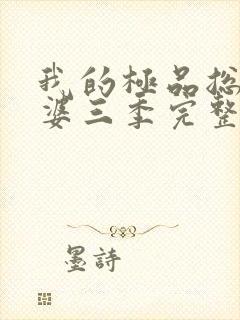 我的極品総
婆三季完整
墨詩